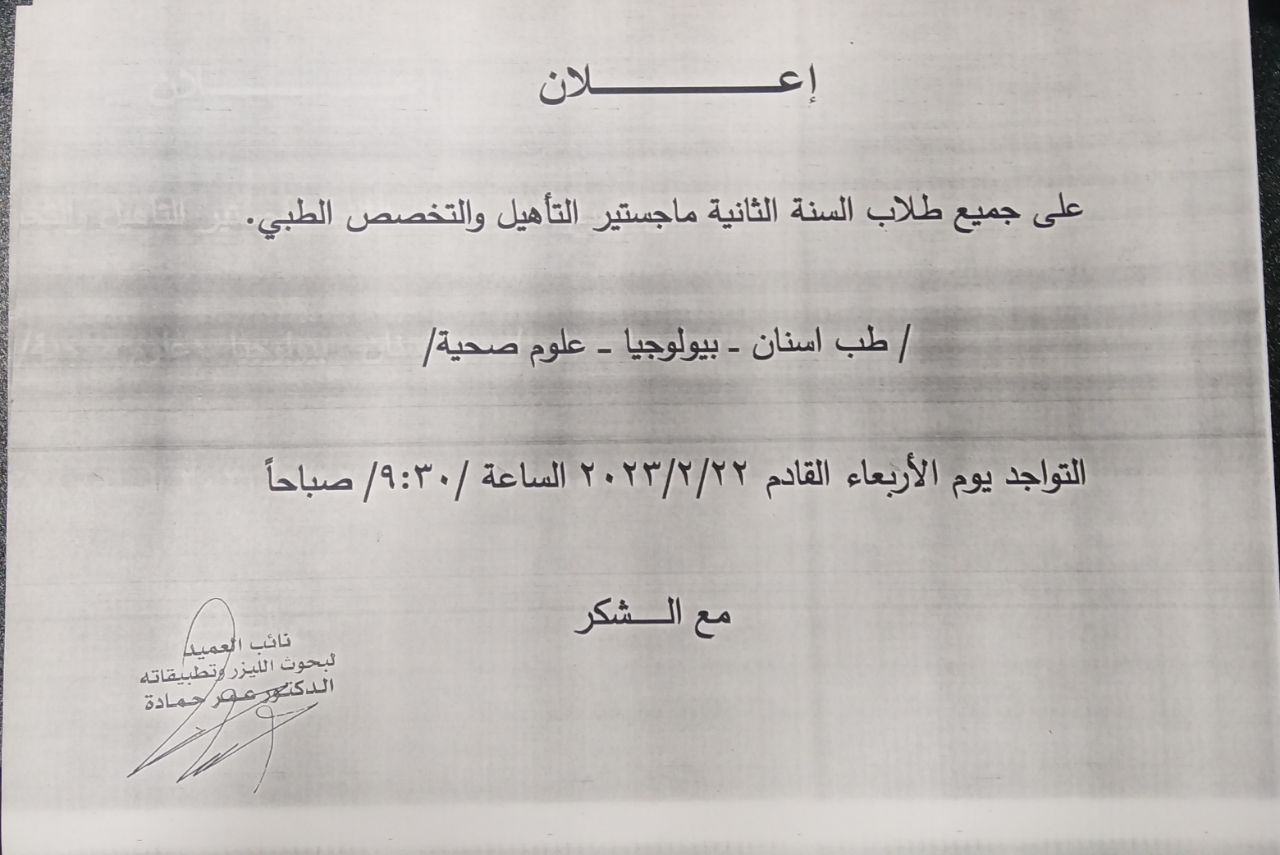 إعـــــــــــــلان
على جميع طلاب السنة الثانية ماجستير التأهيل والتخصص الطبي.
/ طب اسنان ـ بيولوجيا ـ علوم صحية/
التواجد يوم الأربعاء القادم ٢٠٢٣/٢/٢٢ الساعة /٩:٣٠/ صباحاً
مع الـــشكر
نائب العميد
لبحوث الليزر وتطبيقاته
الدكتور عمر حمادة